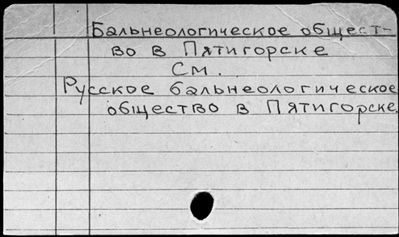 Бальнеологическое общест-
во в Пятигорске
См.
Русское бальнеологическое
общество в Пятигорске.